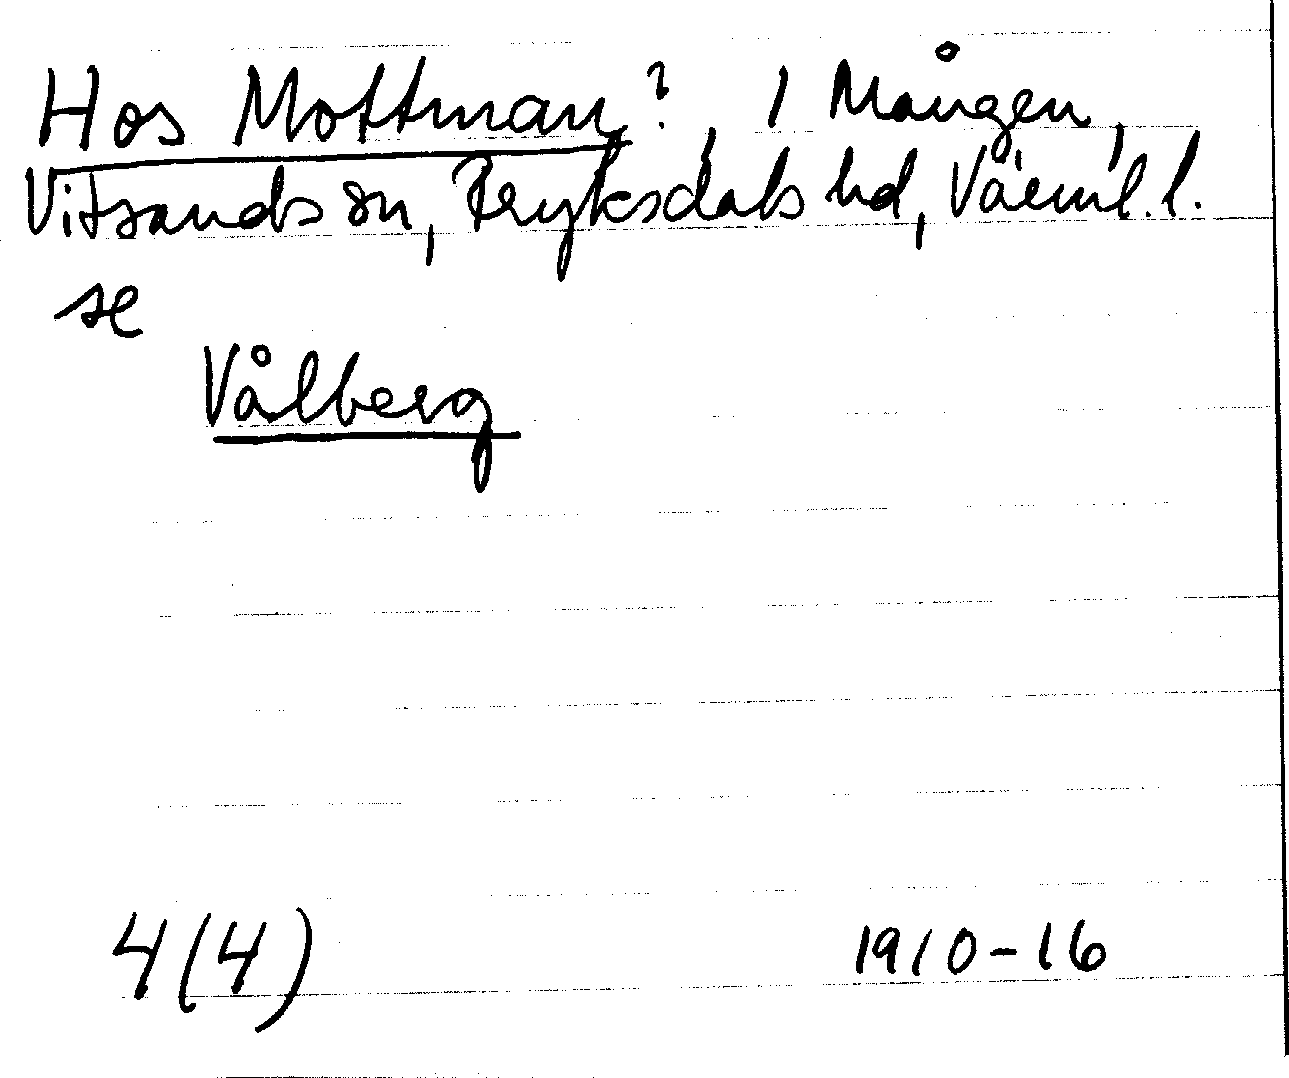 Hos Mottman?, 1 Mången,
Vitsands sn, Fryksdals hd, Värml. l.
se
Vålberg
4(4) 1910-16